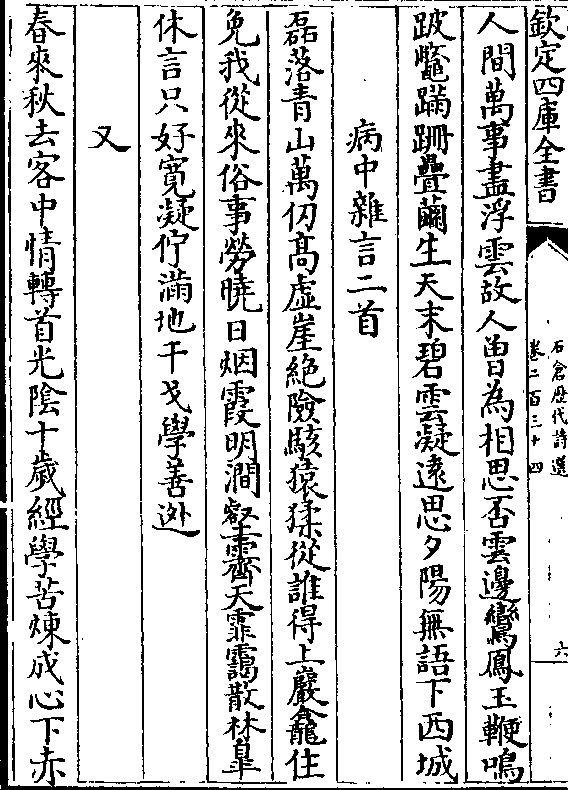 欽定四庫全書
石倉歴代詩選
卷二百三十四
六
人間萬事盡浮雲故人曽為相思否雲邊鸞鳳玉鞭鳴
跛鼈蹣跚疊繭生天末碧雲凝遠思夕陽無語下西城
病中雜言二首
磊落青山萬仞髙虚崖絶險駭猿猱從誰得上巖龕住
免我從來俗事勞曉日烟霞明澗壑霽天霏靄散林臯
休言只好寛凝佇滿地干戈學善逃
又
春來秋去客中情轉首光陰十歲經學苦煉成心下赤